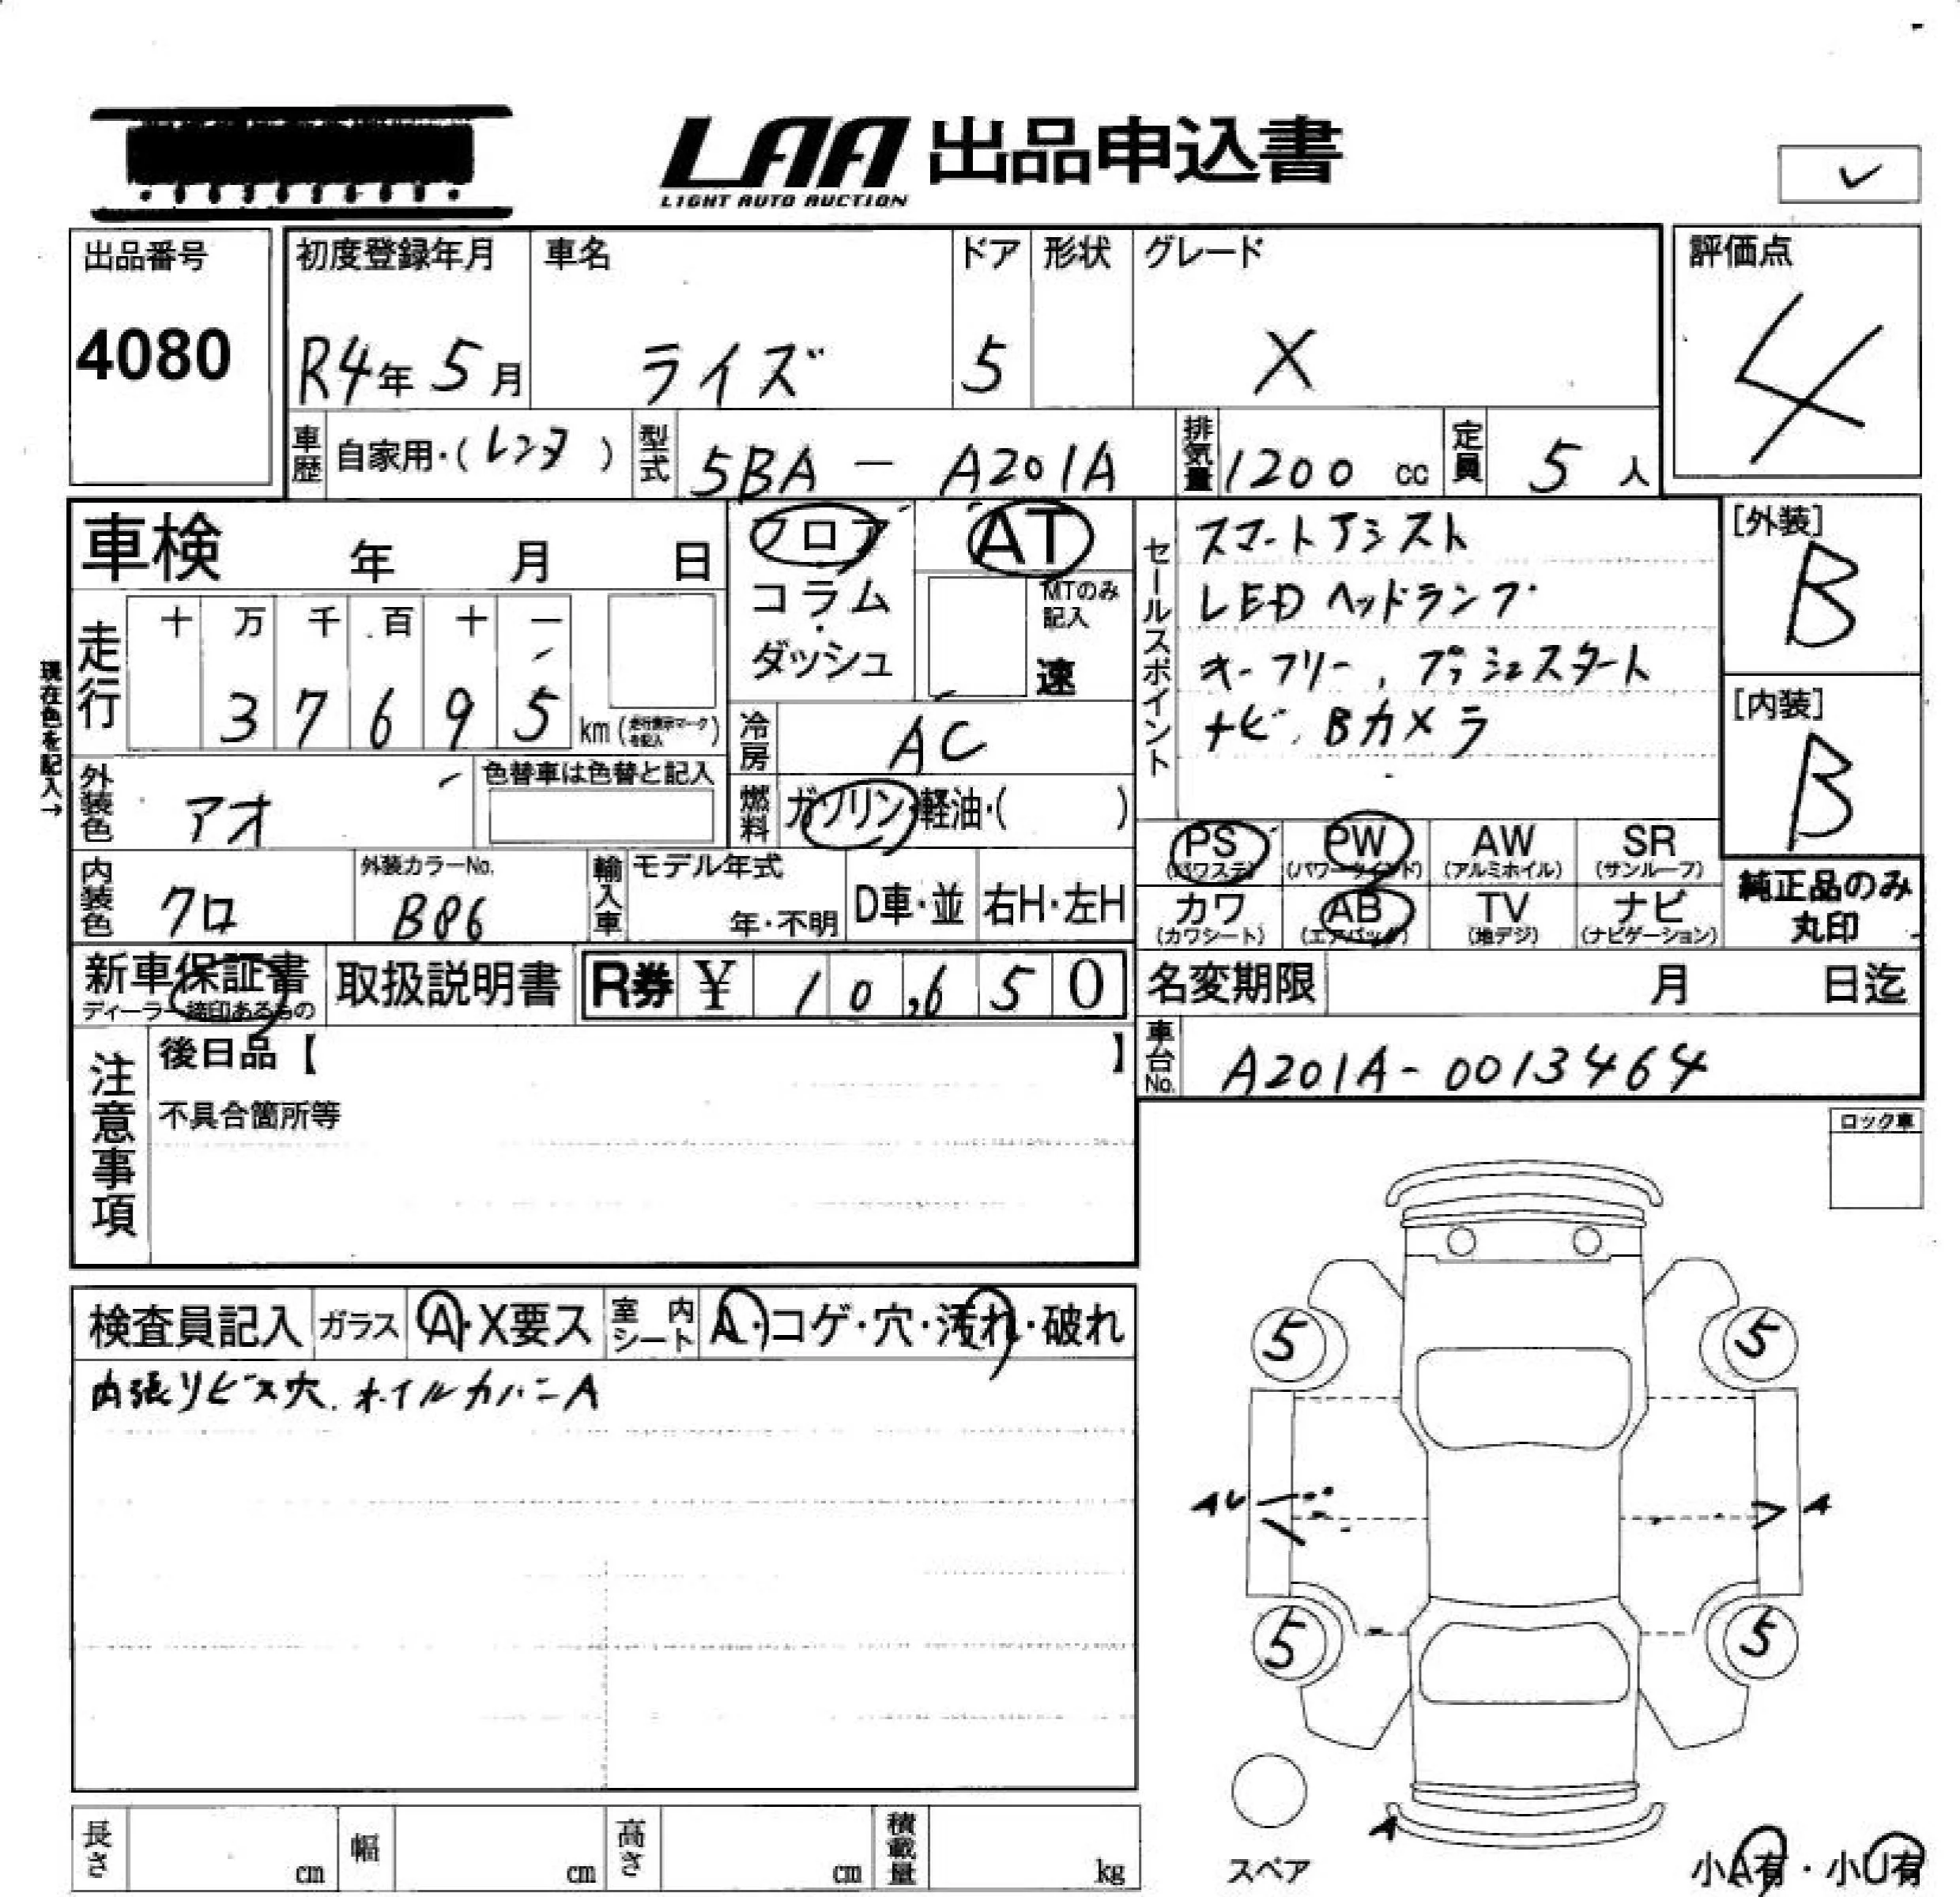 LAA 出品申込書
LIGHT AUTO AUCTION
出品番号
4080
初度登録年月
R4年 5月
車名
ライズ
ドア
5
形状
グレード
X
評価点
4
車歴 自家用・(レンタ)
型式 5BA - A201A
排気量 1200 cc
定員 5 人
車検 年 月 日
フロア
コラム・
ダッシュ
AT
MTのみ記入
速
セールスポイント
スマートアシスト
LEDヘッドランプ
キーフリー、プッシュスタート
ナビ、Bカメラ
[外装]
B
[内装]
B
現在色を記入→
走行
十 万 千 百 十 一
3 7 6 9 5 km (走行表示マークを記入)
冷房 AC
外装色 アオ
色替車は色替と記入
燃料 ガソリン・軽油・( )
PS (パワステ)
PW (パワーウインド)
AW (アルミホイル)
SR (サンルーフ)
カワ (カワシート)
AB (エアバッグ)
TV (地デジ)
ナビ (ナビゲーション)
純正品のみ
丸印
内装色 クロ
外装カラーNo.
B86
輸入車 モデル年式
年・不明
D車・並
右H・左H
新車保証書
ディーラー捺印あるもの
取扱説明書
R券 ¥ 10,650
名変期限 月 日迄
車台No. A201A-0013464
注意事項
後日品【 】
不具合箇所等
ロック車
検査員記入
ガラス A・X要ス
室内シート A・コゲ・穴・汚れ・破れ
内張りビス穴、ホイルカバーA
5 5
AU A
5 5
A
スペア
小A有・小U有
長さ cm
幅 cm
高さ cm
積載量 kg